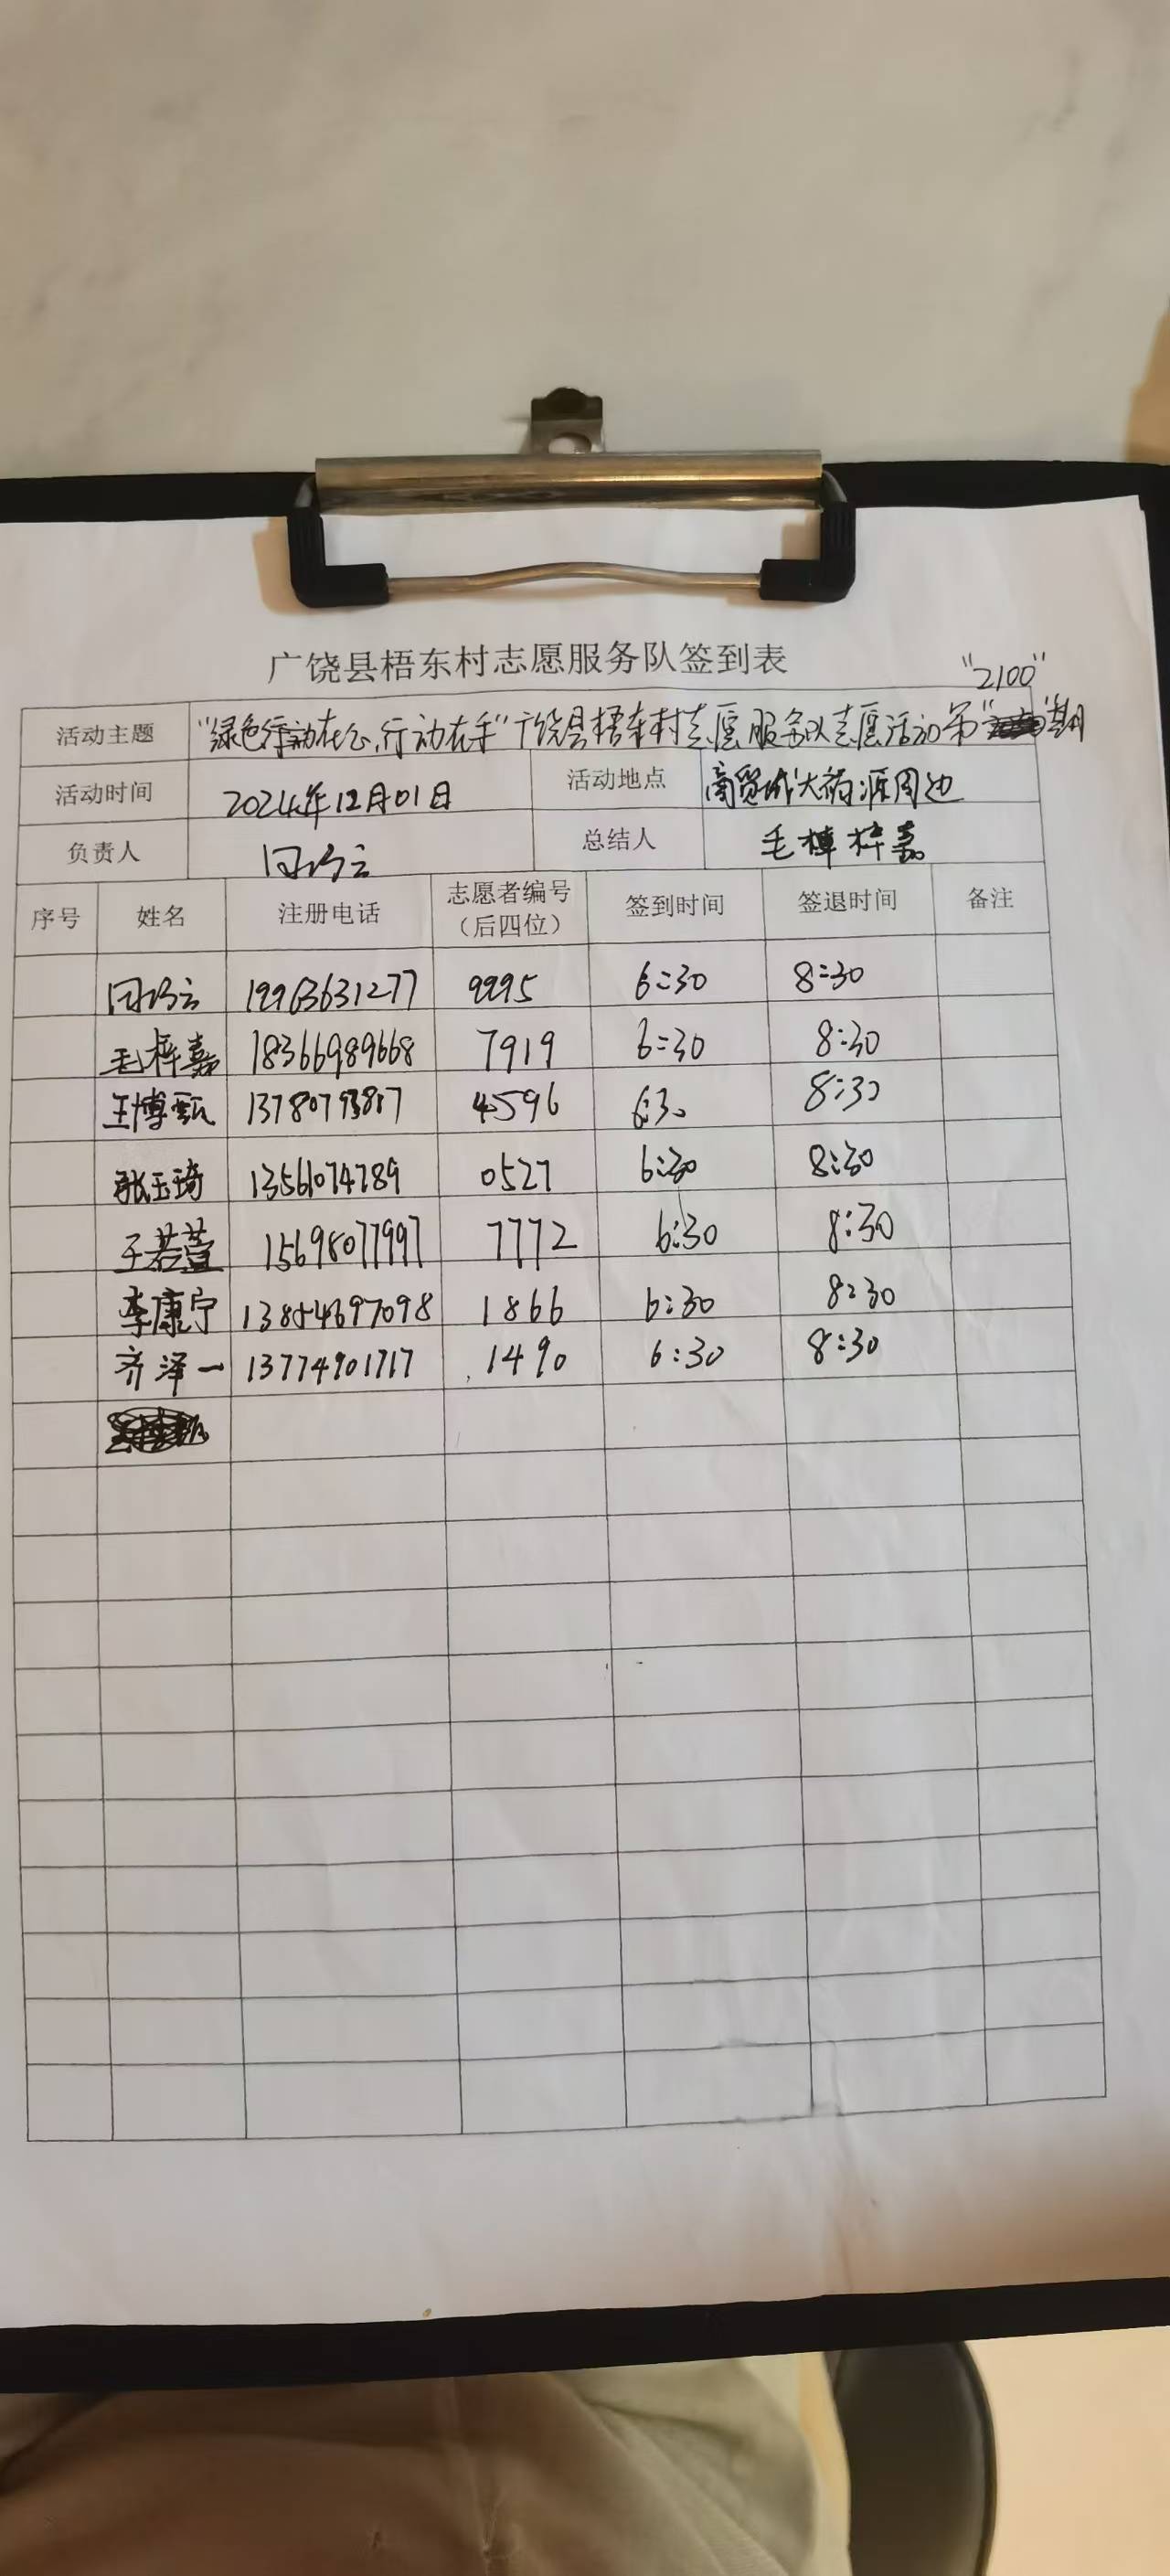 广饶县梧东村志愿服务队签到表
"2100"
活动主题 "绿色行动在心,行动在手"广饶县梧东村志愿服务队志愿活动第" "期
活动时间 2024年12月01日 活动地点 商贸城大药源周边
负责人 总结人 毛梓嘉
序号 姓名 注册电话 志愿者编号(后四位) 签到时间 签退时间 备注
19963631277 9995 6:30 8:30
毛梓嘉 18366989668 7919 6:30 8:30
王博甄 4596 6:30 8:30
张玉琦 13561074789 0527 6:30 8:30
于若萱 15698077997 7772 6:30 8:30
李康宁 13854697098 1866 6:30 8:30
齐泽一 13774901717 1490 6:30 8:30